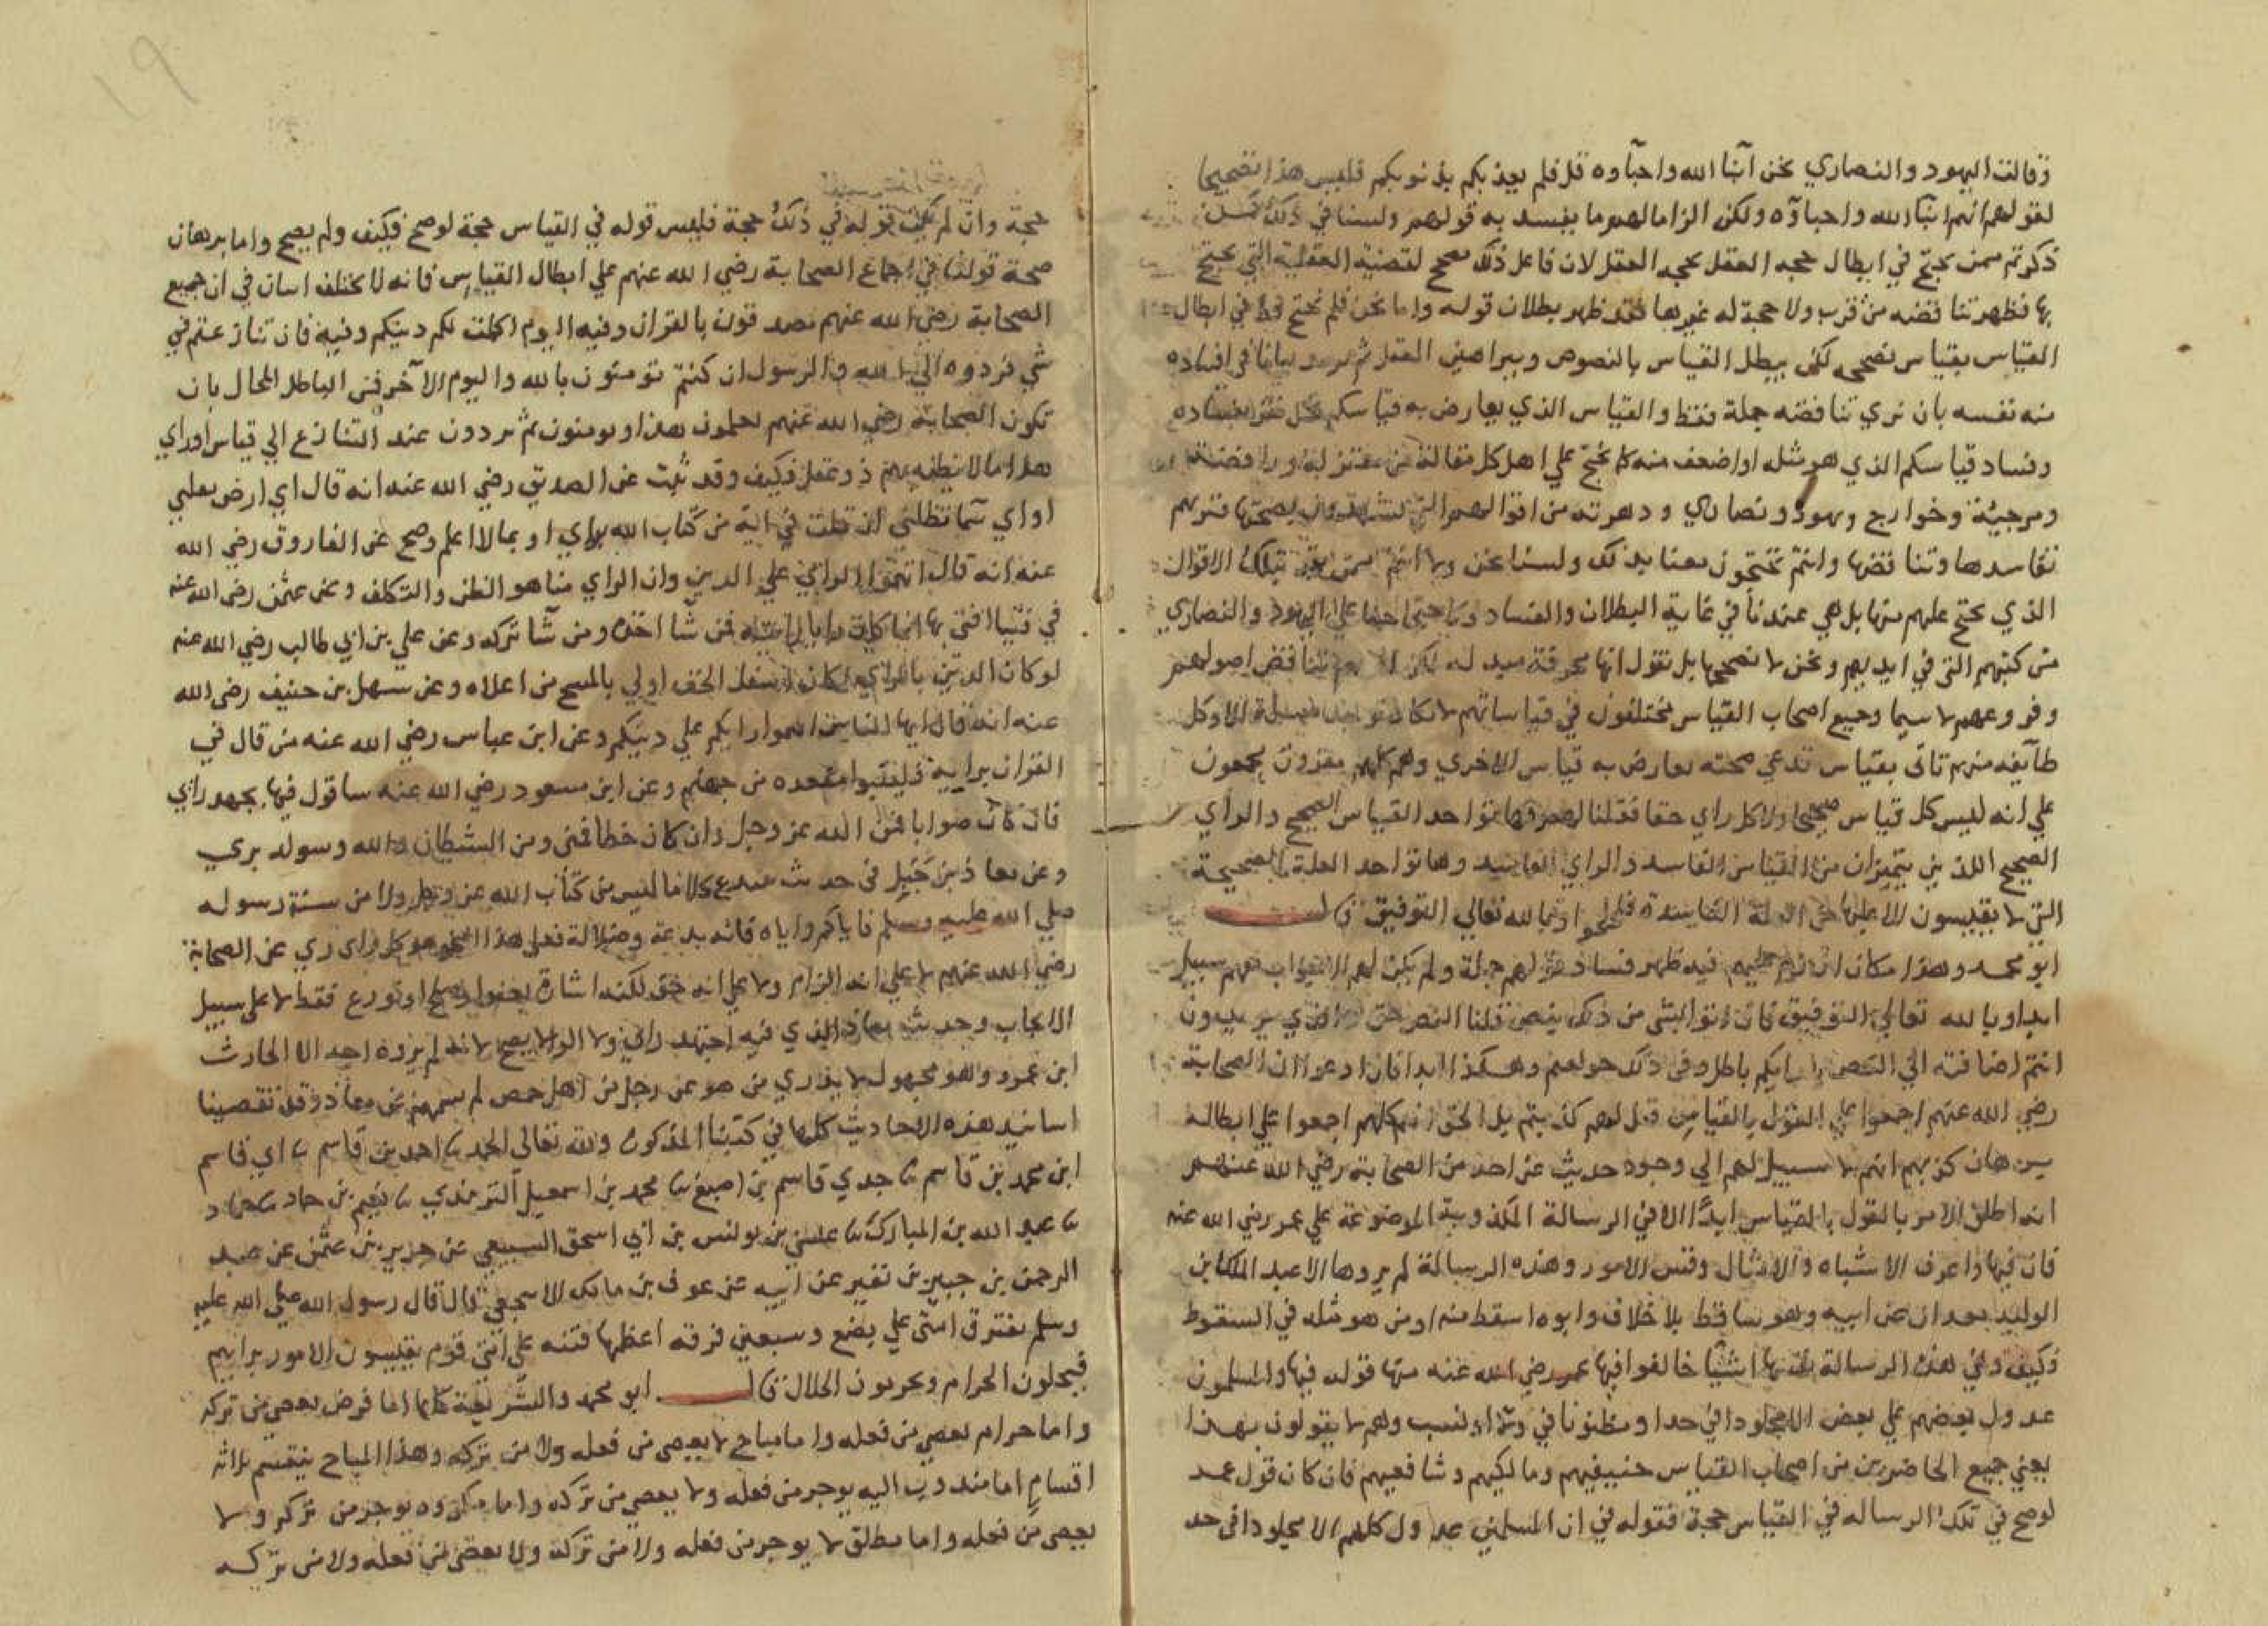 وقالت اليهود والنصاري نحن ابنا الله واحباوه قل فلم يعذبكم بذنوبكم فليس هذا تصحيحا
لقولهم انهم ابنا الله واحباوه ولكن الزاما لهم ما يفسد به قولهم ولسنا في ذلك كمن
ذكرتم ممن يحتج في ابطال حجه العقل بحجه العقل لان فاعل ذلك مصحح لقضية العقلية التي يحتج
بها فظهر تناقضه من قرب ولا حجة له غيرها فقد ظهر بطلان قوله واما نحن فلم نحتج قط في ابطال
القياس بقياس نصححه لكن يبطل القياس بالنصوص وببراهين العقل ثم نزيد بيانا في افساده
منه نفسه بان نري تناقضه جملة فقط والقياس الذي يعارض به قياسكم نحن نقر بفساده
وفساد قياسكم الذي هو مثله او اضعف منه كما نحتج علي اهل كل مقالة من معتزلة ورافضة
ومرجئة وخوارج ويهود ونصاري ودهرية من اقوالهم التي يشهدون بصحتها فنريهم
تفاسدها وتناقضها وانتم تحتجون معنا بذلك ولسنا نحن ولا انتم ممن يقر بتلك الاقوال
الذي نحتج عليهم منها بل هي عندنا في غاية البطلان والفساد وكاحتجاجنا علي اليهود والنصاري
من كتبهم التي في ايديهم ونحن لا نصححها بل نقول انها محرفة مبدله لكن لنريهم تناقض اصولهم
وفروعهم لا سيما وجميع اصحاب القياس مختلفون في قياساتهم لا تكاد توجد مسيلة الا وكل
طايفه منهم تاتي بقياس تدعي صحته تعارض به قياس الاخري وهم كلهم مقرون مجمعون
علي انه ليس كل قياس صحيحا ولا كل راي حقا فقلنا لهم فهاتوا حد القياس الصحيح والراي
الصحيح اللذين يتميزان من القياس الفاسد والراي الفاسد وهاتوا حد العلة الصحيحة
التي لا يقيسون الا عليها من العلة الفاسدة فلجلجوا وبالله تعالي التوفيق قال
ابو محمد وهذا مكان ان زم عليهم فيه ظهر فساد قولهم جملة ولم يكن لهم الي جواب يفهم سبيل
ابدا وبالله تعالي التوفيق فان اتوا بشي من ذلك بنص قلنا النص حق والذي تريدون
انتم اضافته الي النص بارايكم باطل وفي ذلك خولفتم وهكذا ابدا فان ادعوا ان الصحابة
رضي الله عنهم اجمعوا علي القول بالقياس قيل لهم كذبتم بل الحق انهم كلهم اجمعوا علي ابطاله
برهان كذبهم انهم لا سبيل لهم الي وجود حديث عن احد من الصحابة رضي الله عنهم
انه اطلق الامر بالقول بالقياس ابدا الا في الرسالة المكذوبة الموضوعة علي عمر رضي الله عنه
فان فيها واعرف الاشباه والامثال وقس الامور وهذه الرسالة لم يروها الا عبد الملك ابن
الوليد بمعدان عن ابيه وهو ساقط بلا خلاف وابوه اسقط منه او من هو مثله في السقوط
فكيف وفي هذه الرسالة نفسها اشيا خالفوا فيها عمر رضي الله عنه منها قوله فيها والمسلمون
عدول بعضهم علي بعض الا مجلودا في حد او ظنونا في ولا او نسب وهم لا يقولون بهذا
يعني جميع الحاضرين من اصحاب القياس حنيفيهم ومالكيهم وشافعيهم فان كان قول عمر
لو صح في تلك الرساله في القياس حجة فقوله في ان المسلمين عدول كلهم الا مجلودا في حد
حجة وان لم يكن قوله في ذلك حجة فليس قوله في القياس حجة لو صح فكيف ولم يصح واما برهان
صحة قولنا في اجماع الصحابة رضي الله عنهم علي ابطال القياس فانه لا يختلف اثنان في ان جميع
الصحابة رضي الله عنهم مصدقون بالقران وفيه اليوم اكملت لكم دينكم وفيه فان تنازعتم في
شي فردوه الي الله والرسول ان كنتم تومنون بالله واليوم الاخر فمن الباطل المحال بان
تكون الصحابة رضي الله عنهم يعلمون هذا ويومنون ثم يردون عند التنازع الي قياس او راي
هذا ما لا يظنه بهم ذو عقل فكيف وقد ثبت عن الصديق رضي الله عنه انه قال اي ارض تقلني
او اي سما تظلني ان قلت في اية من كتاب الله برايي او بما لا اعلم وصح عن الفاروق رضي الله
عنه انه قال اتهموا الراي علي الدين وان الراي منا هو الظن والتكلف وعن عثمن رضي الله عنه
في فتيا افتي بها انما كان رايا رايته فمن شا اخذ ومن شا تركه وعن علي بن ابي طالب رضي الله عنه
لو كان الدين بالراي لكان اسفل الخف اولي بالمسح من اعلاه وعن سهل بن حنيف رضي الله
عنه انه قال ايها الناس اتهموا رايكم علي دينكم وعن ابن عباس رضي الله عنه من قال في
القران برايه فليتبوا مقعده من جهنم وعن ابن مسعود رضي الله عنه ساقول فيها بجهد رايي
فان كان صوابا فمن الله عز وجل وان كان خطا فمني ومن الشيطان والله ورسوله بري
وعن معاذ بن جبل في حديث تبتدع كلاما ليس من كتاب الله عز وجل ولا من سنة رسوله
صلي الله عليه وسلم فاياكم واياه فانه بدعة وضلالة فعلي هذا النحو هو كل راي روي عن الصحابة
رضي الله عنهم لا علي انه الزام ولا علي انه حق لكنه اشارة بعفو او صلح او تورع فقط لا علي سبيل
الايجاب وحديث معاذ الذي فيه اجتهد رايي ولا الوا لا يصح لانه لم يروه احد الا الحارث
ابن عمرو وهو مجهول لا يدري من هو عن رجل من اهل حمص لم يسمهم عن معاذ وقد تقصينا
اسانيد هذه الاحاديث كلها في كتبنا المذكورة ولله تعالي الحمد نا احمد بن قاسم نا ابي قاسم
ابن محمد بن قاسم نا جدي قاسم بن اصبغ نا محمد بن اسمعيل الترمذي نا نعيم بن حماد
نا عبد الله بن المبارك نا عيسي بن يونس بن ابي اسحق السبيعي عن حريز بن عثمن عن عبد
الرحمن بن جبير بن نفير عن ابيه عن عوف بن مالك الاشجعي قال قال رسول الله صلي الله عليه
وسلم تفترق امتي علي بضع وسبعين فرقه اعظمها فتنه علي امتي قوم يقيسون الامور برايهم
فيحلون الحرام ويحرمون الحلال قال ابو محمد والشريعة كلها اما فرض يعصي من تركه
واما حرام يعصي من فعله واما مباح لا يعصي من فعله ولا من تركه وهذا المباح ينقسم ثلاثه
اقسام اما مندوب اليه يوجر من فعله ولا يعصي من تركه واما مكروه يوجر من تركه ولا
يعصي من فعله واما مطلق لا يوجر من فعله ولا من تركه ولا يعصي من فعله ولا من تركه
١٩